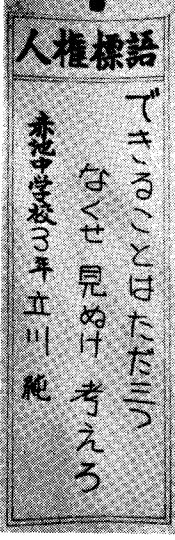 人権標語
できることはただ三つ
なくせ 見ぬけ 考えろ
赤池中学校3年 立川 純